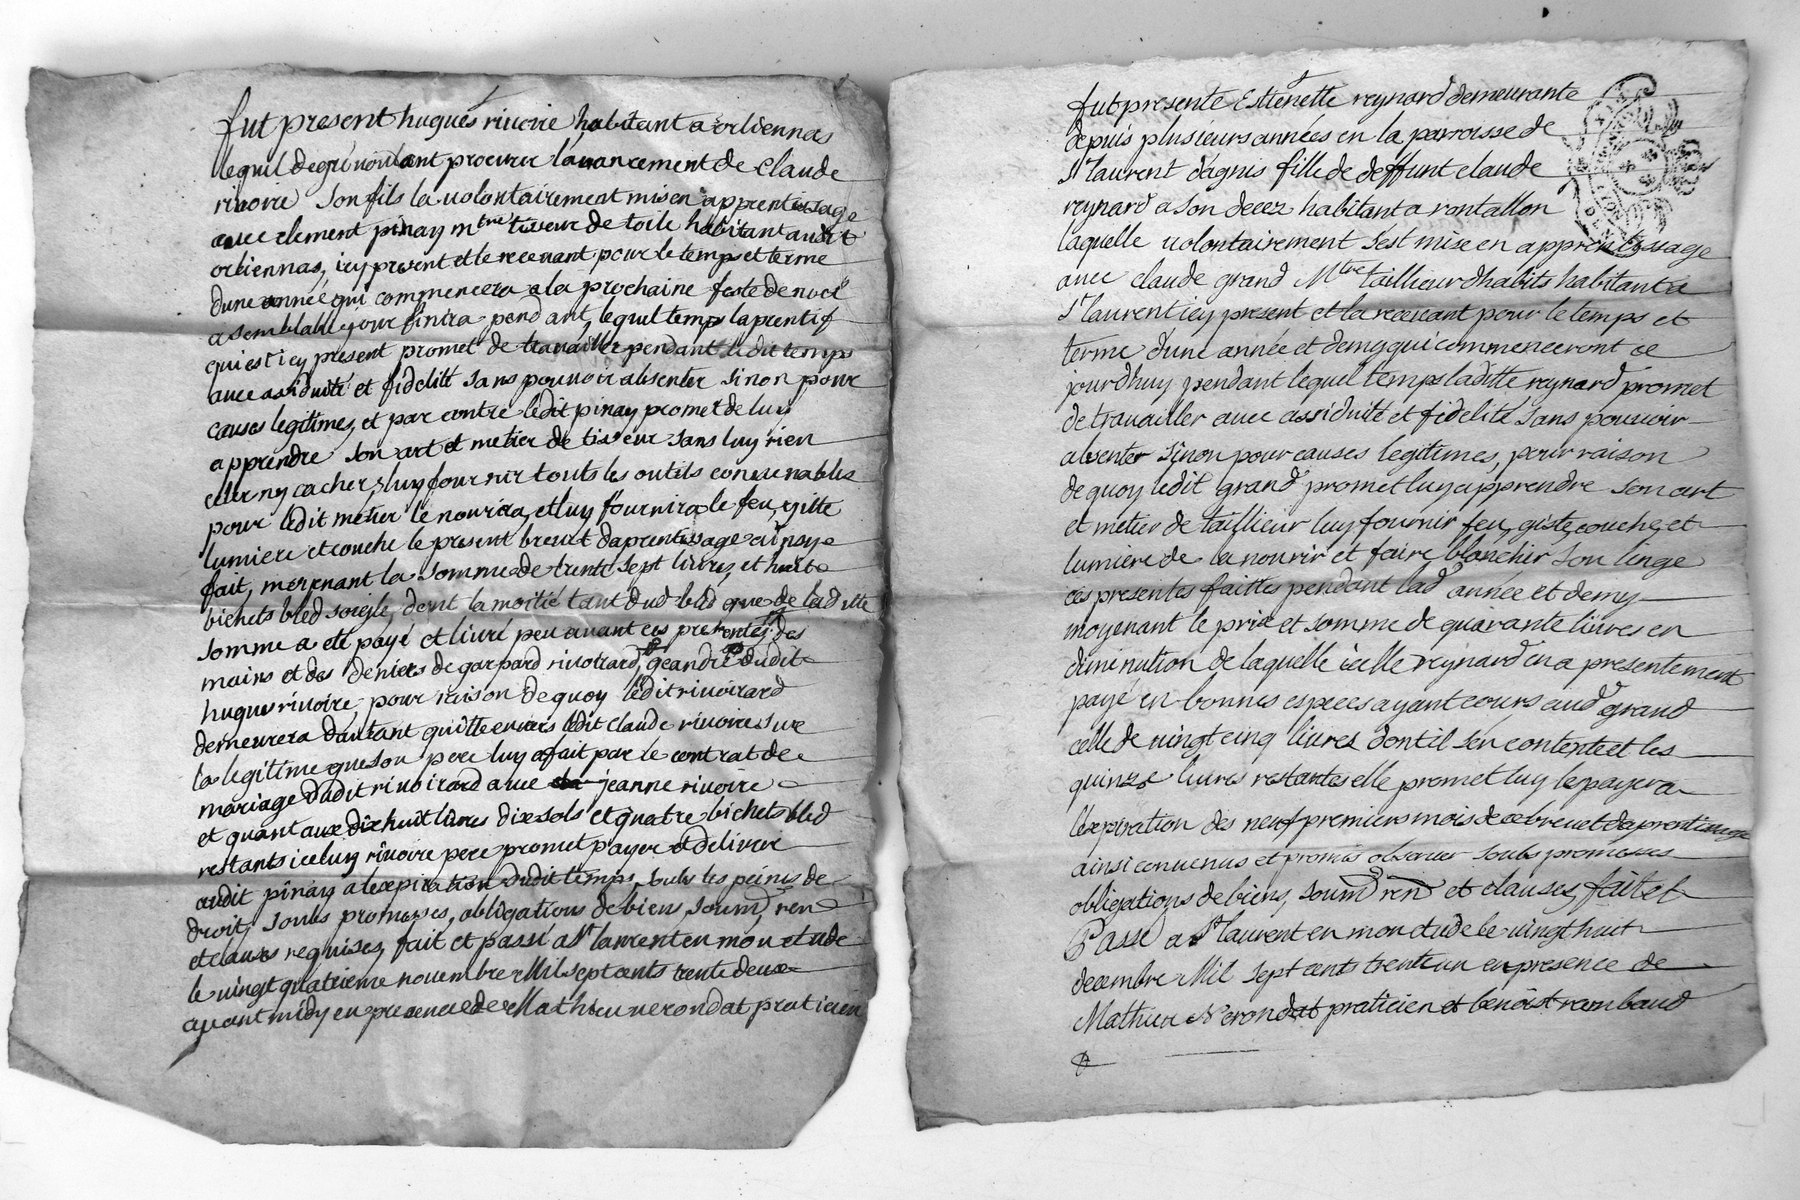 fut present hugues rivoire habitant a orliennas
lequel de gré voulant procurer lavancement de Claude
rivoire Son fils la volontairement mis en apprentissage
avec clement pinay mtre tisseur de toile habitant audit
orliennas, icy present et le recevant pour le temps et terme
dune année qui commencera a la prochaine feste de noel
a semblable jour finira pendant lequel temps laprentif
qui est icy present promet de travailler pendant ledit temps
avec assiduité et fidelité sans pouvoir absenter sinon pour
causes legitimes, et par contre ledit pinay promet de luy
apprendre son art et metier de tisseur sans luy rien
celer ny cacher, luy fournir touts les outils convenables
pour ledit metier le nourira, et luy fournira le feu, gitte
lumiere et couche le present brevet daprentissage ainsy
fait, moyenant la somme de trente sept livres, et huit
bichets bled soigle, dont la moitié tant dud bled que de laditte
somme a été payé et livré peu avant ces presentes des
mains et des deniers de gaspard rivoirard, gendre dudit
hugues rivoire, pour raison de quoy ledit rivoirard
demeurera dautant quitte envers ledit claude rivoire sur
la legitime que son pere luy a fait par le contrat de
mariage dudit rivoirard avec jeanne rivoire
et quant aux dix huit livres dix sols et quatre bichets bled
restants iceluy rivoire pere promet payer et delivrer
audit pinay a lexpiration dudit temps, soubs les peines de
droit, soubs promesses, obligations de biens, soumd ren
et clauses requises, fait et passé a St laurent en mon etude
le vingt quatrieme novembre Mil sept cents trente deux
avant midy en presence de Mathieu verondat praticien
fut presente Estienette reynard demeurante
depuis plusieurs années en la parroisse de
St laurent dagnis fille de deffunt claude
reynard a son decez habitant a rontallon
laquelle volontairement s'est mise en apprentissage
avec claude grand Mtre taillieur dhabits habitant a
St laurent icy present et la recevant pour le temps et
terme d'une année et demy qui commenceront ce
jourdhuy pendant lequel temps laditte reynard promet
de travailler avec assiduité et fidelité sans pouvoir
absenter sinon pour causes legitimes, pour raison
de quoy ledit grand promet luy apprendre son art
et metier de taillieur luy fournir feu, giste, couche, et
lumiere de la nourir et faire blanchir son linge
ces presentes faittes pendant lad année et demy
moyenant le prix et somme de quarante livres en
diminution de laquelle icelle reynard en a presentement
payé en bonnes especes ayant cours aud grand
celle de vingt cinq livres dont il s'en contente et les
quinze livres restantes elle promet luy le payer a
lexpiration des neuf premiers mois de ce brevet daprentissage
ainsi convenus et promis observer soubs promesses
obligations de biens, soumd rend et clauses, fait et
Passé a St laurent en mon etude le vingt huit
decembre Mil sept cents trente un en presence de
Mathieu Verondat praticien et benoist raimbaud